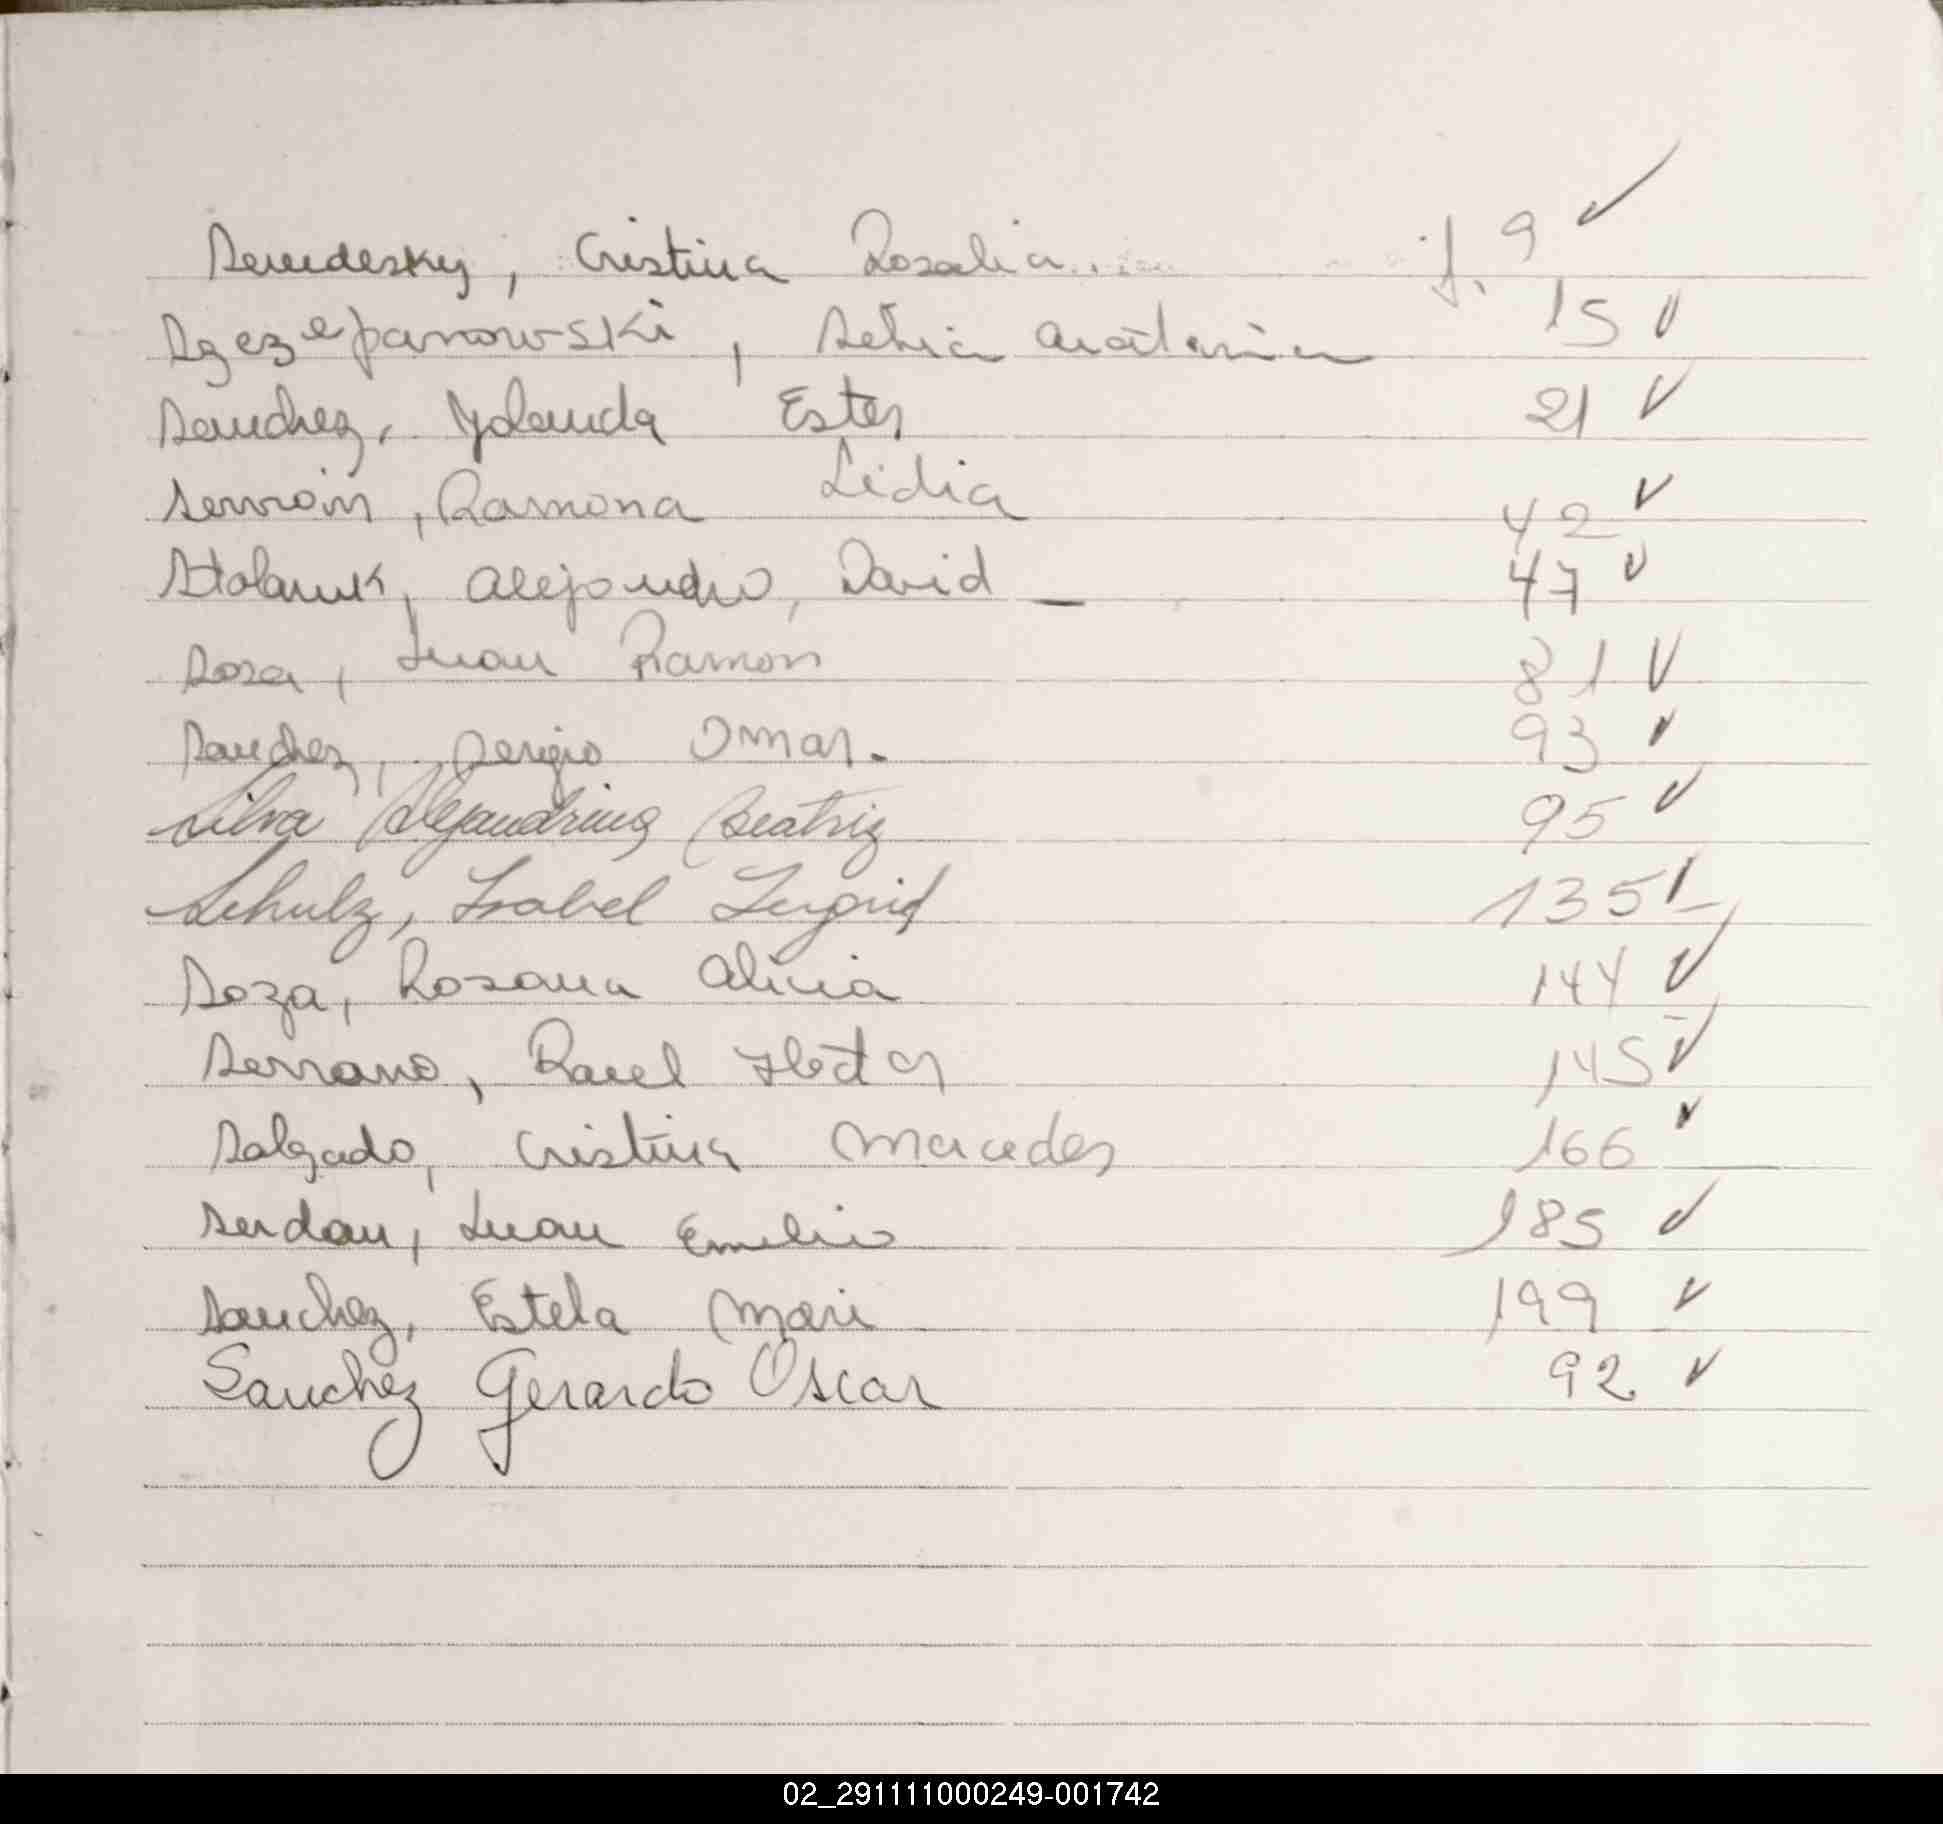 Senudesky, Cristina Rosalia f. 9 ✓
Szczepanowski, Silvia Catalina 15 ✓
Sanchez, Yolanda Ester 21 ✓
Serviän, Ramona Lidia 42 ✓
Stolaruk, Alejandro, David _ 47 ✓
Sosa, Juan Ramon 81 ✓
Sanchez, Sergio Omar. 93 ✓
Silva Alejandrina Beatriz 95 ✓
Schulz, Isabel Ingrid 135 ✓
Soza, Rosana Alicia 144 ✓
Serrano, Raul Hector 145 ✓
Salgado, Cristina Mercedes 166 ✓
Serdan, Juan Emilio 185 ✓
Sanchez, Estela Mari 199 ✓
Sanchez Gerardo Oscar 92 ✓
02_291111000249-001742